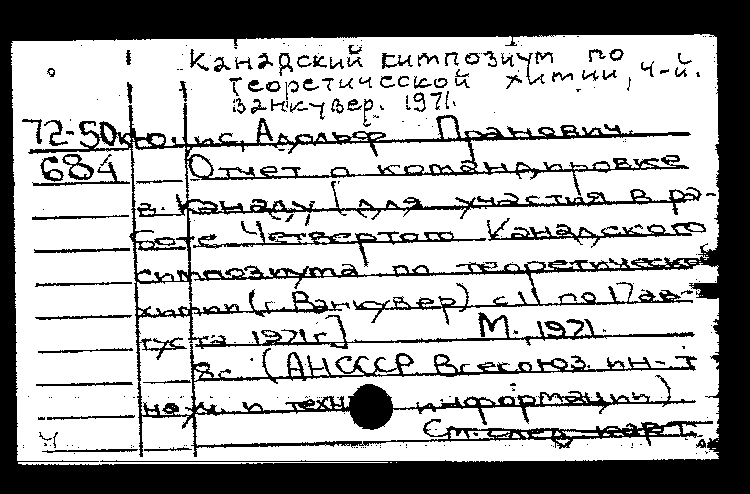 Канадский симпозиум по
теоретической химии, 4-й.
Ванкувер. 1971.
72-50к Адольф Пранович.
684 Отчет о командировке
в Канаду [для участия в ра-
боте Четвертого Канадского
симпозиума по теоретической
химии (г. Ванкувер) с 11 по 17 ав-
густа 1971 г.] М., 1971.
8с. (АН СССР Всесоюз. ин-т
науч. и техн. информации).
См. след. карт.